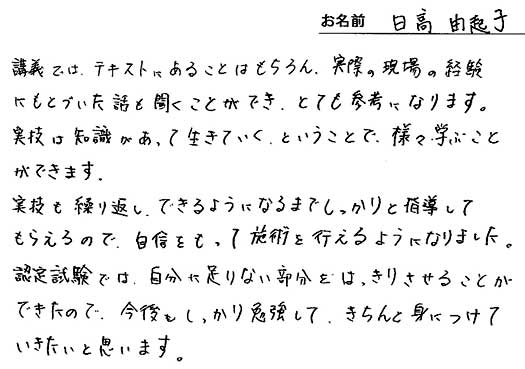 お名前 日高 由起子
講義では、テキストにあることはもちろん、実際の現場の経験
にもとづいた話も聞くことができ、とても参考になります。
実技は知識があって生きていく、ということで、様々学ぶこと
ができます。
実技も繰り返し、できるようになるまでしっかりと指導して
もらえるので、自信をもって施術を行えるようになりました。
認定試験では、自分に足りない部分をはっきりさせることが
できたので、今後もしっかり勉強して、きちんと身につけて
いきたいと思います。